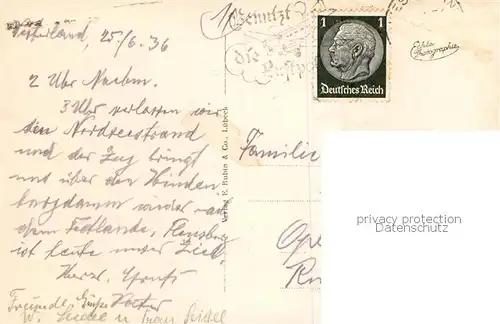 Westerland, 25/6.36
2 Uhr Nachm.
3 Uhr verlassen wir
den Nordseestrand
und der Zug bringt
uns über den Hinden
burgdamm wieder nach
dem Festlande, Flensburg
ist heute unser Ziel.
Herzl. Gruß
Freunde
W. Seidel u Frau Seidel
Verlag E. Rubin & Co., Lübeck
Benutzt
die
Luftpost
1 1
Deutsches Reich
Echte
Photographie
Familie
privacy protection
Datenschutz